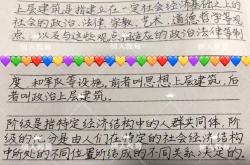 上层建筑是指建立在一定社会经济基础之上的
社会的政治、法律、宗教、艺术、道德哲学等观
点,以及与这些观点相适应的政治法律等制
度和军队等设施,前者叫思想上层建筑,后
者叫政治上层建筑。
阶级是指特定经济结构中的人群共同体,阶
级的划分是由人们在特定的社会经济结构
中所处的不同位置所结成的不同关系决定的